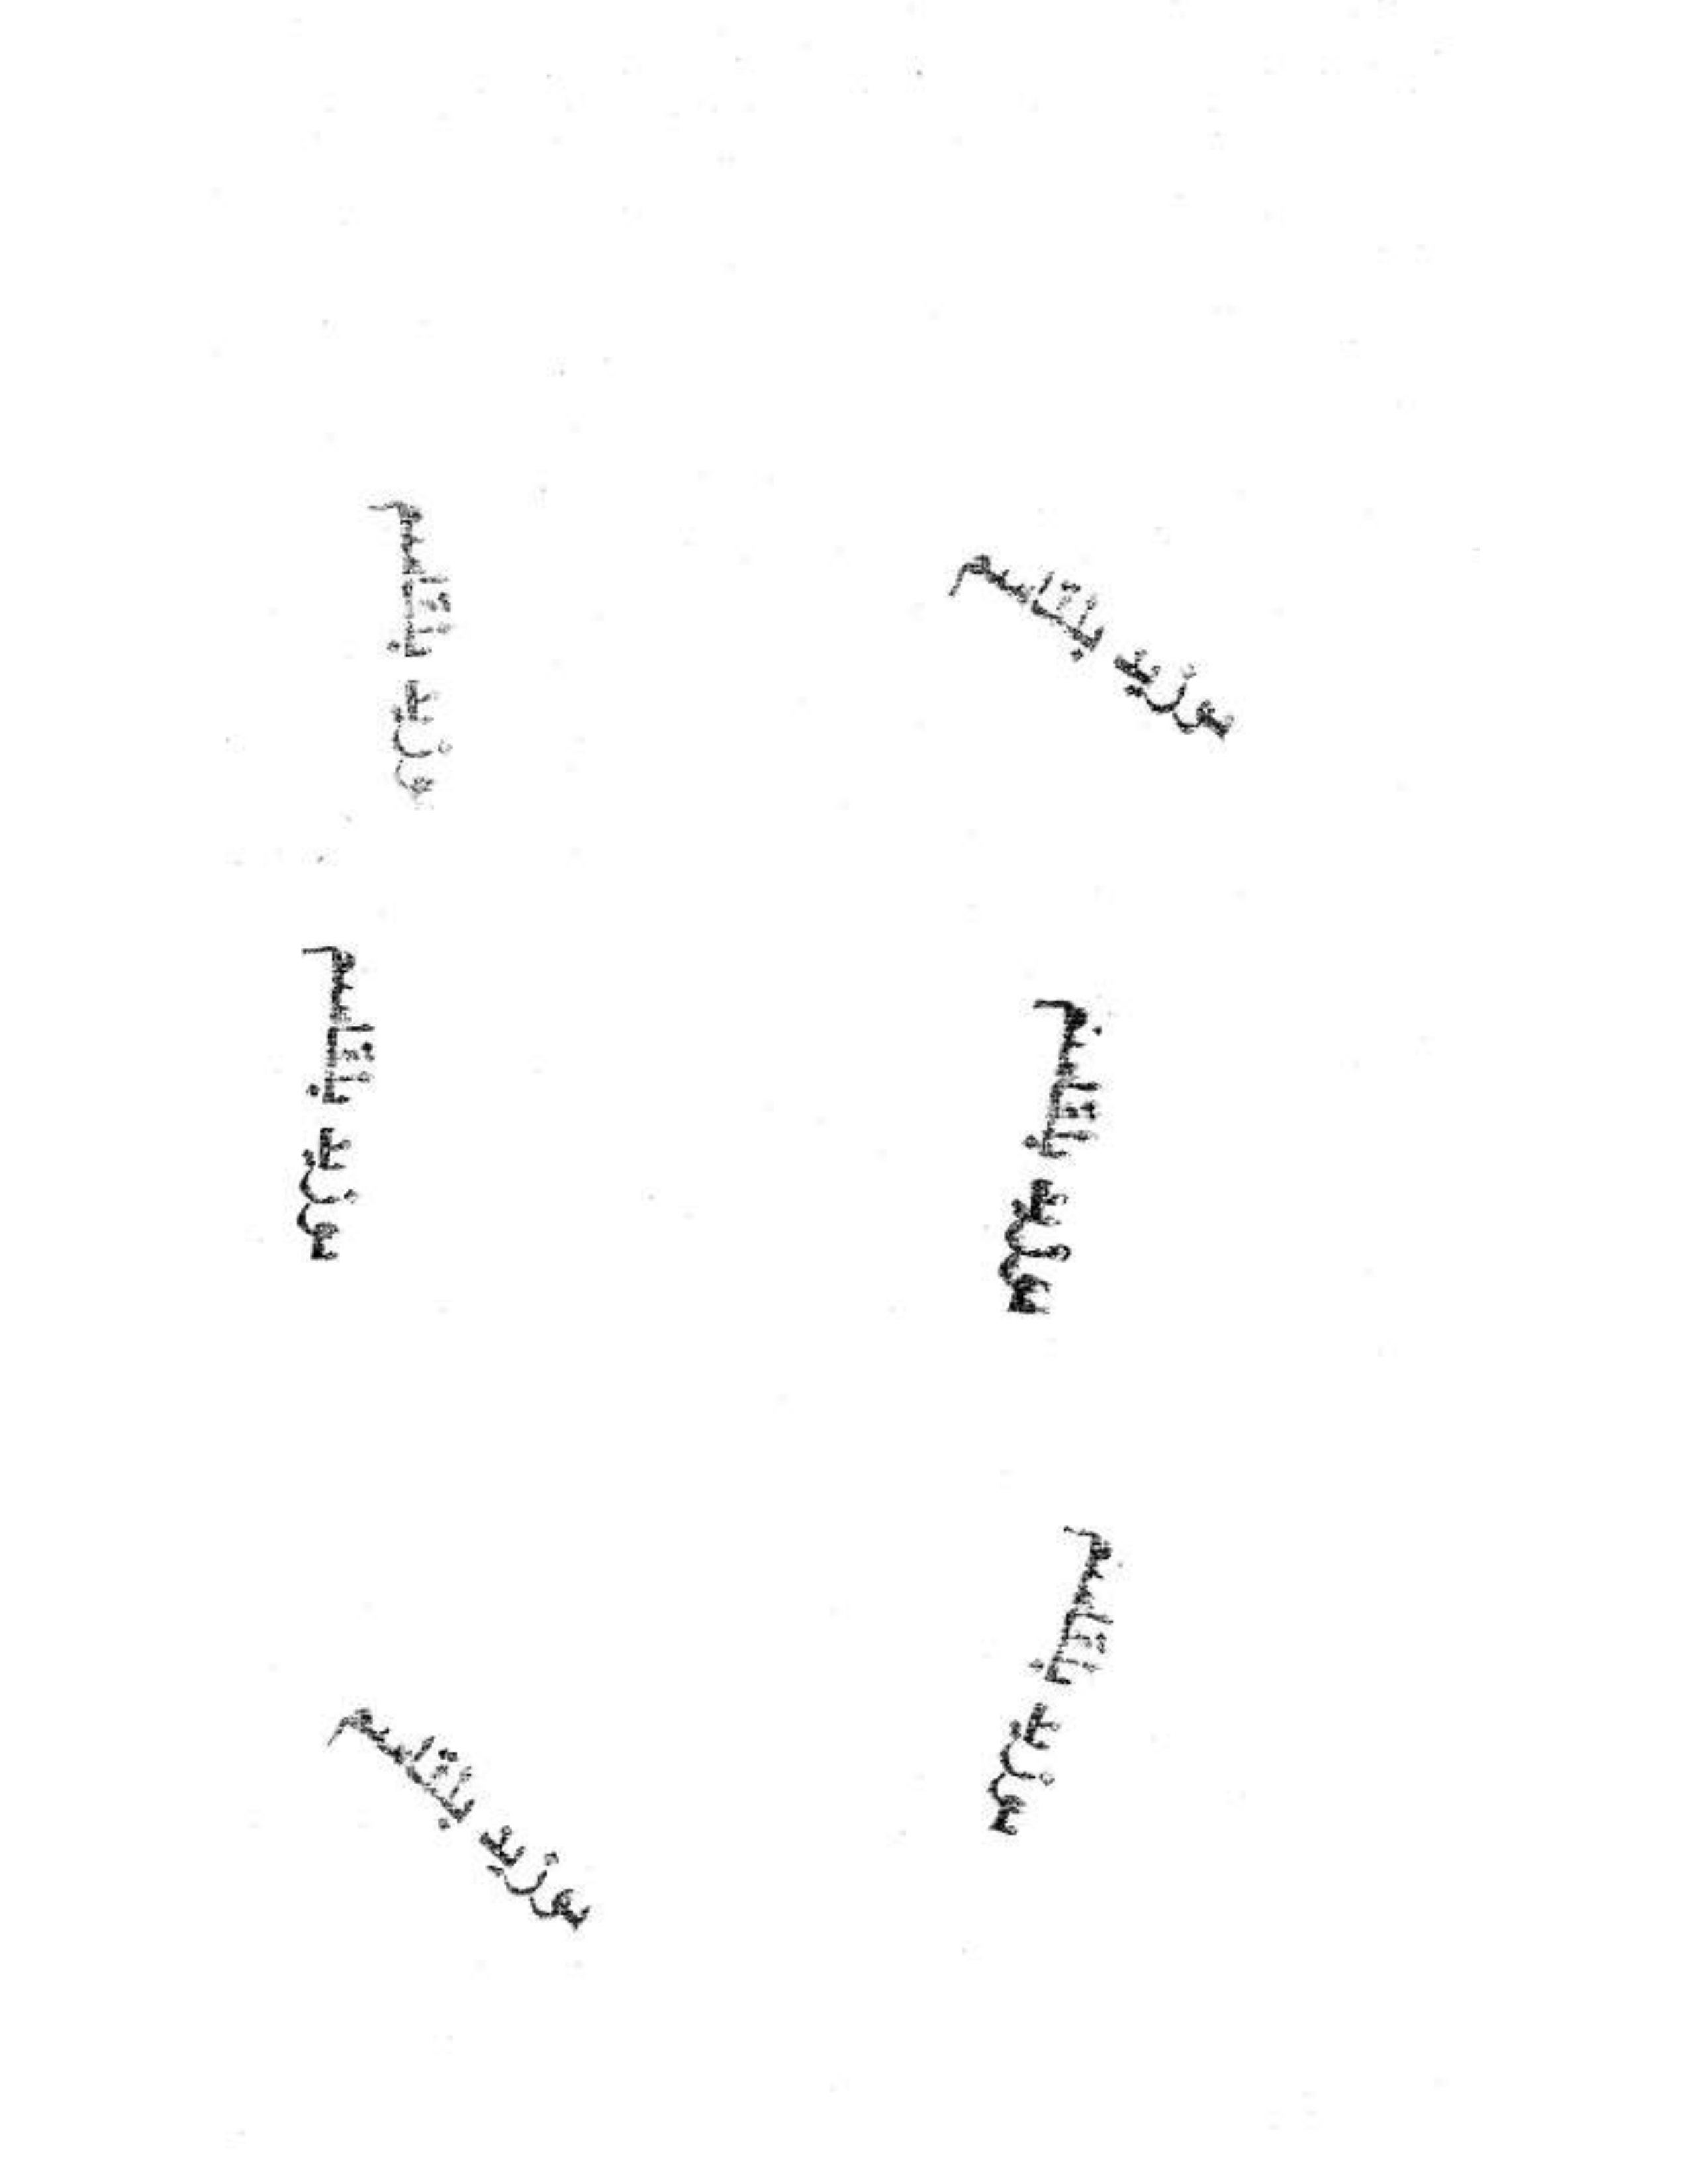 بوزيد بلقاسم
بوزيد بلقاسم
بوزيد بلقاسم
بوزيد بلقاسم
بوزيد بلقاسم
بوزيد بلقاسم